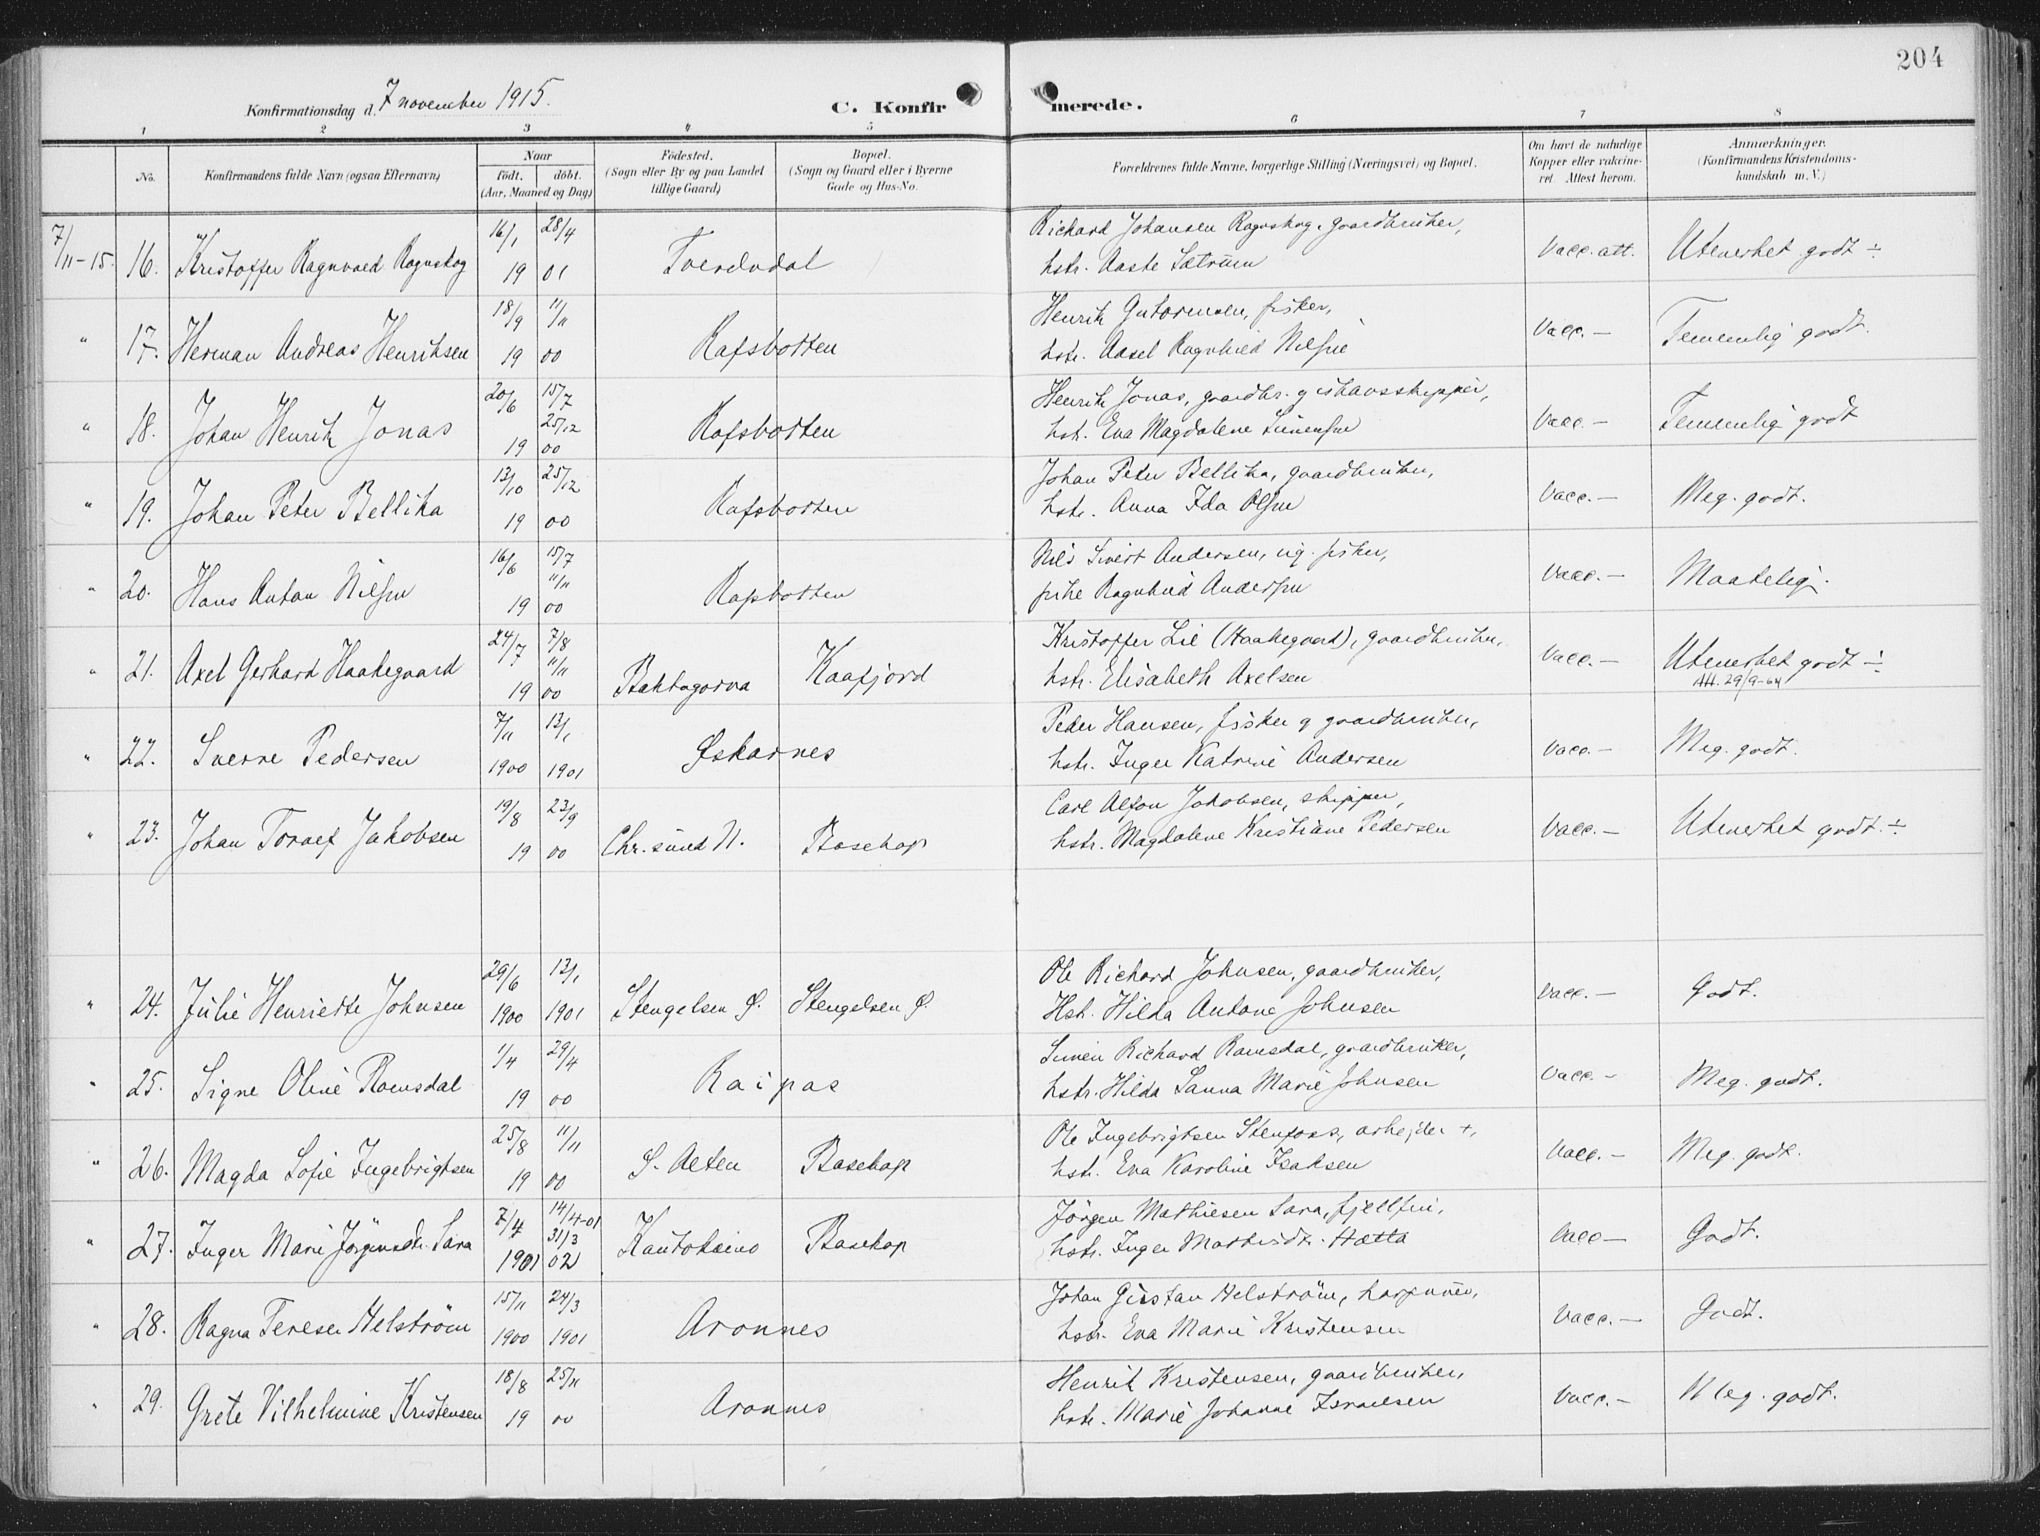 204
Konfirmationsdag d. 7 november 1915.
C. Konfirmerede.
1 2 3 4 5 6 7 8
No.
Konfirmandens fulde Navn (ogsaa Efternavn)
Naar
født. døbt.
(Aar, Maaned og Dag)
Fødested.
(Sogn eller By og paa Landet
tillige Gaard)
Bopæl.
(Sogn og Gaard eller i Byerne
Gade og Hus-No.
Forældrenes fulde Navne, borgerlige Stilling (Næringsvei) og Bopæl.
Om havt de naturlige
Kopper eller vakcine-
ret. Attest herom.
Anmærkninger.
(Konfirmandens Kristendoms-
kundskab m. V.)
7/11-15. 16. Kristoffer Ragnvald Rognskog 16/1 1901 28/4 01 Tverelvdal
Richard Johansen Rognskog, gaardbruker,
hstr. Aaste Sætrum
Vacc. att. Utmerket godt ÷
" 17. Herman Andreas Henriksen 18/9 11/11 19 00 Rafsbotten
Henrik Gutormsen, fisker,
hstr. Aasel Ragnhild Nilsne
Vacc. — Temmelig godt.
" 18. Johan Henrik Jonas 20/6 15/7 25/12 19 00 Rafsbotten
Henrik Jonas, gaardbr. og ishavsskipper,
hstr. Eva Magdalene Simensen
Vacc. — Temmelig godt
" 19. Johan Peter Bellika 13/10 25/12 19 00 Rafsbotten
Johan Peter Bellika, gaardbruker,
hstr. Anna Ida Olsen
Vacc. — Meg. godt.
" 20. Hans Anton Nilsen 16/6 15/7 11/11 19 00 Rafsbotten
Nils Sivert Andersen, ug. fisker,
pike Ragnhild Andersen
Vacc. — Maatelig.
" 21. Axel Gerhard Haakegaard 24/7 7/8 11/11 19 00 Baktagorva Kaafjord
Kristoffer Lie (Haakegaard), gaardbruker,
hstr. Elisabeth Axelsen
Vacc. — Utmerket godt ÷
Att. 29/9-64
" 22. Sverre Pedersen 7/11 13/1 1900 1901 Øskarnes
Peder Hansen, fisker og gaardbruker,
hstr. Inger Katrine Andersen
Vacc. — Meg. godt.
" 23. Johan Toralf Jakobsen 19/8 23/9 19 00 Chr.sund N. Bosekop
Carl Alfon Jakobsen, skipper,
hstr. Magdalene Kristiane Pedersen
Vacc. — Utmerket godt. ÷
" 24. Julie Henriette Johnsen 29/6 13/1 1900 1901 Stengelsen Ø. Stengelsen Ø.
Ole Richard Johnsen, gaardbruker,
Hst. Hilda Antone Johnsen
Vacc. — Godt.
" 25. Signe Oline Romsdal 1/4 29/4 19 00 Raipas
Simen Richard Romsdal, gaardbruker,
hstr. Hilda Sanna Marie Johnsen
Vacc. — Meg. godt.
" 26. Magda Sofie Ingebrigtsen 25/8 11/11 19 00 S. Alten Bosekop
Ole Ingebrigtsen Stenfoss, arbejder +,
hstr. Eva Karoline Isaksen
Vacc. — Meg. godt.
" 27. Inger Marie Jörgensdtr. Sara 7/4 14/4-01 31/3 1901 02 Kautokeino Bosekop
Jörgen Mathiesen Sara, fjellfin,
hstr. Inger Mathisdtr. Hætta
Vacc — Godt.
" 28. Ragna Terese Helström 15/11 24/3 1900 1901 Aronnes
Johan Gustav Helström, harpuner,
hstr. Eva Marie Kristensen
Vacc. — Godt.
" 29. Grete Vilhelmine Kristensen 18/8 25/11 19 00 Aronnes
Henrik Kristensen, gaardbruker,
hstr. Marie Johanne Israelsen
Vacc. — Meg. godt.